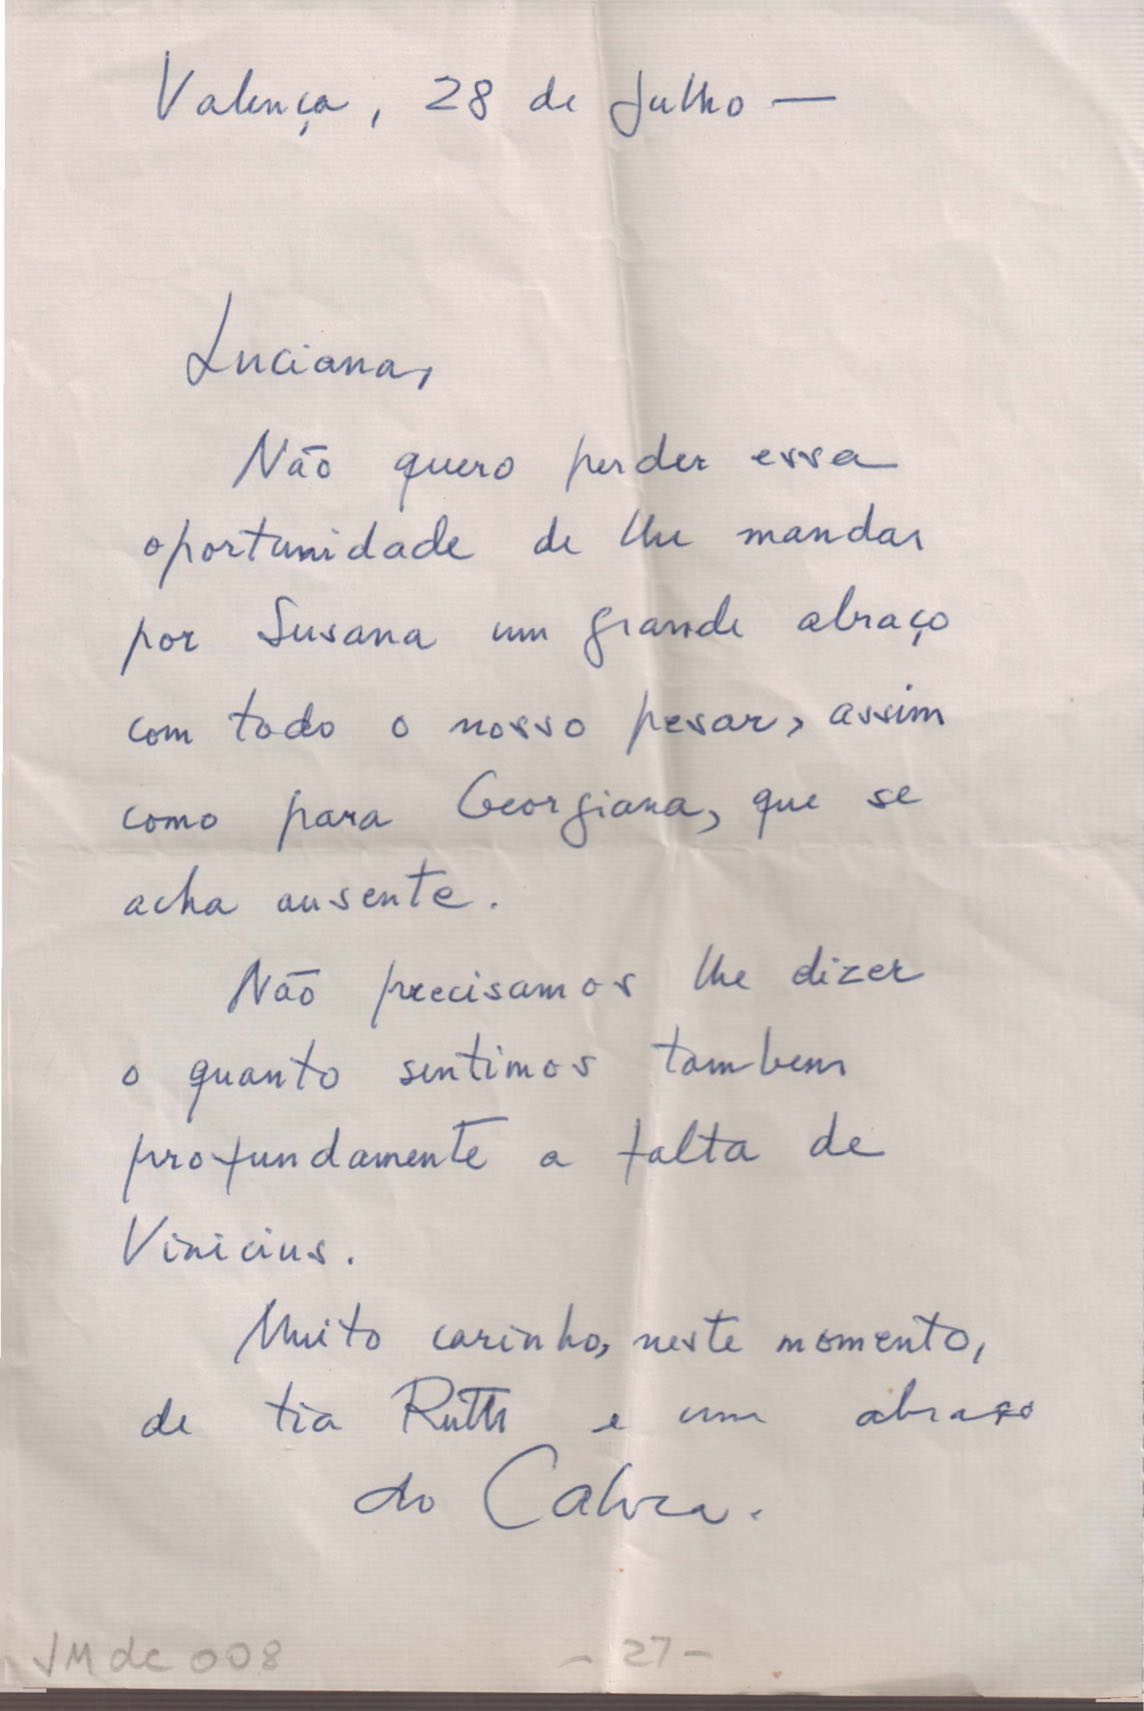 Valença, 28 de Julho —
Luciana,
Não quero perder essa
oportunidade de lhe mandar
por Susana um grande abraço
com todo o nosso pesar, assim
como para Georgiana, que se
acha ausente.
Não precisamos lhe dizer
o quanto sentimos tambem
profundamente a falta de
Vinicius.
Muito carinho, neste momento,
de tia Ruth e um abraço
do
VMdc 008 - 27 -